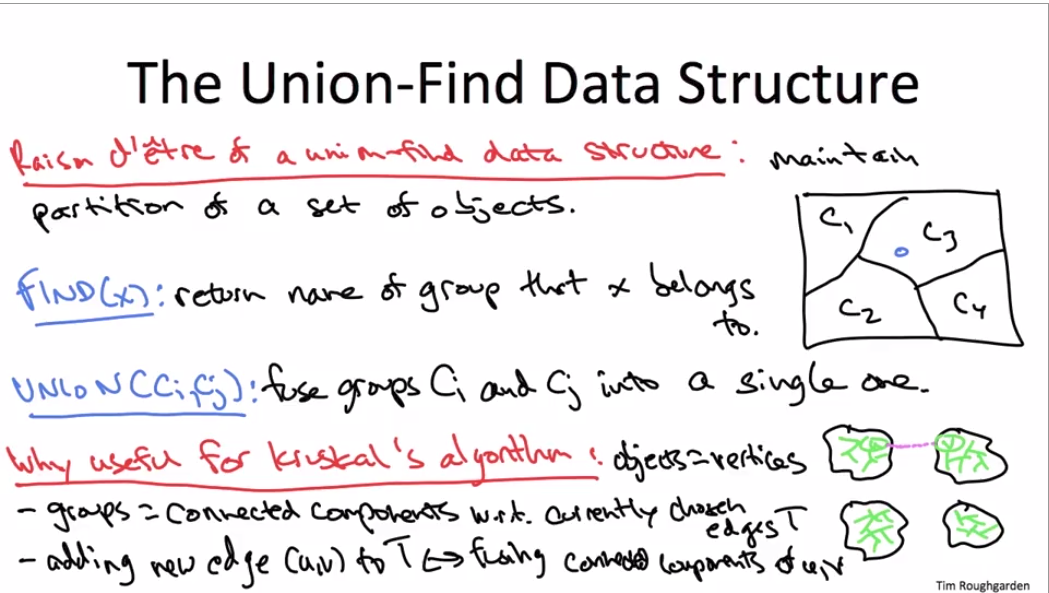 The Union-Find Data Structure
Raison d'être of a union-find data structure: maintain
partition of a set of objects.
C1
C3
FIND(x): return name of group that x belongs
to.
C2
C4
UNION(Ci,Cj): fuse groups Ci and Cj into a single one.
Why useful for Kruskal's algorithm: objects=vertices
- groups = connected components w.r.t. currently chosen
edges T
- adding new edge (u,v) to T ⟺ fusing connected components of u,v
Tim Roughgarden